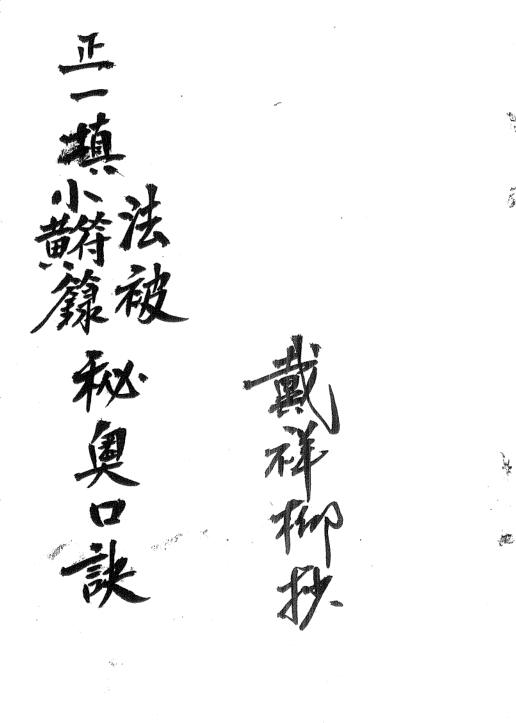 正一填
法被
小黃符籙
秘奧口訣
戴祥柳抄